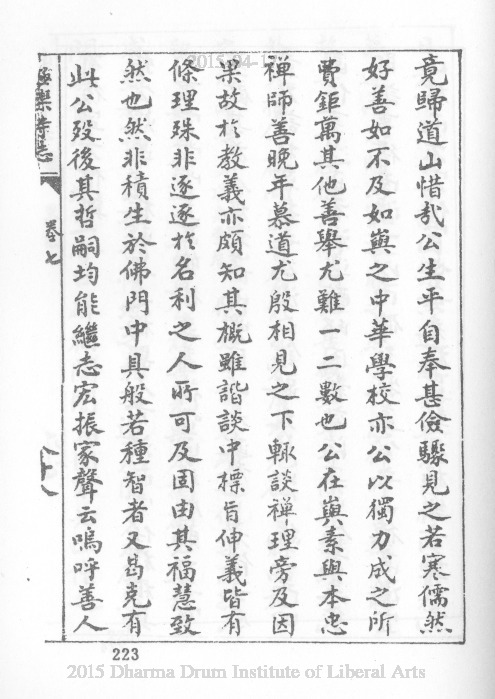 竟歸道山惜哉公生平自奉甚儉驟見之若寒儒然
好善如不及如嶼之中華學校亦公以獨力成之所
費鉅萬其他善舉尤難一二數也公在嶼素與本忠
禅師善晚年慕道尤殷相見之下輙談禅理旁及因
果故於教義亦頗知其概雖諧談中標旨伸義皆有
條理殊非逐逐於名利之人所可及固由其福慧致
然也然非積生於佛門中具般若種智者又曷克有
此公歿後其哲嗣均能繼志宏振家聲云嗚呼善人
極樂寺志
卷七
223
2015 Dharma Drum Institute of Liberal Arts